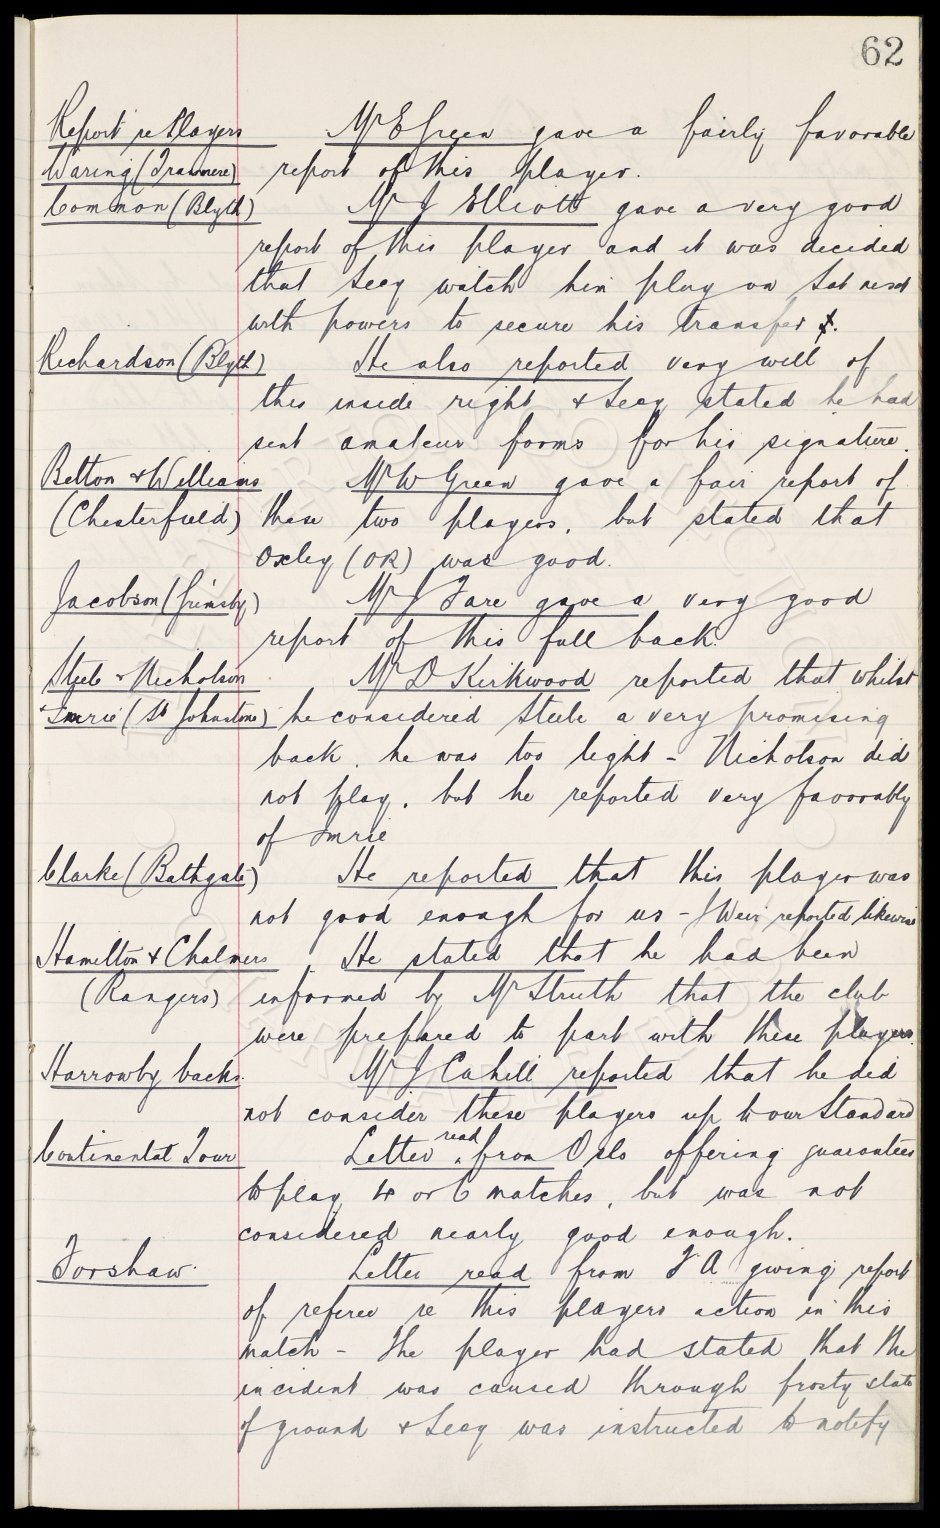 62
Report re Players Mr E Green gave a fairly favorable
Waring (Tranmere) report of this player.
Common (Blyth) Mr J Elliott gave a very good
report of this player and it was decided
that Secy watch him play on Sat next
with powers to secure his transfer
Richardson (Blyth) He also reported very well of
this inside right & Secy stated he had
sent amateur forms for his signature.
Betton & Williams Mr W Green gave a fair report of
(Chesterfield) these two players, but stated that
Oxley (OR) was good.
Jacobson (Grimsby) Mr J Fare gave a very good
report of this full back.
Steele & Nicholson Mr D Kirkwood reported that whilst
& Imrie (St Johnstone) he considered Steele a very promising
back, he was too light - Nicholson did
not play, but he reported very favorably
of Imrie
Clarke (Bathgate) He reported that this player was
not good enough for us - J Weir reported likewise
Hamilton & Chalmers He stated that he had been
(Rangers) informed by Mr Struth that the club
were prepared to part with these players.
Harrowby backs. Mr J Cahill reported that he did
not consider these players up to our Standard
Continental Tour Letter read from Oslo offering guarantees
to play 4 or 6 matches, but was not
considered nearly good enough.
Forshaw. Letter read from F A giving report
of referee re this players action in this
match - The player had stated that the
incident was caused through frosty state
of ground & Secy was instructed to notify